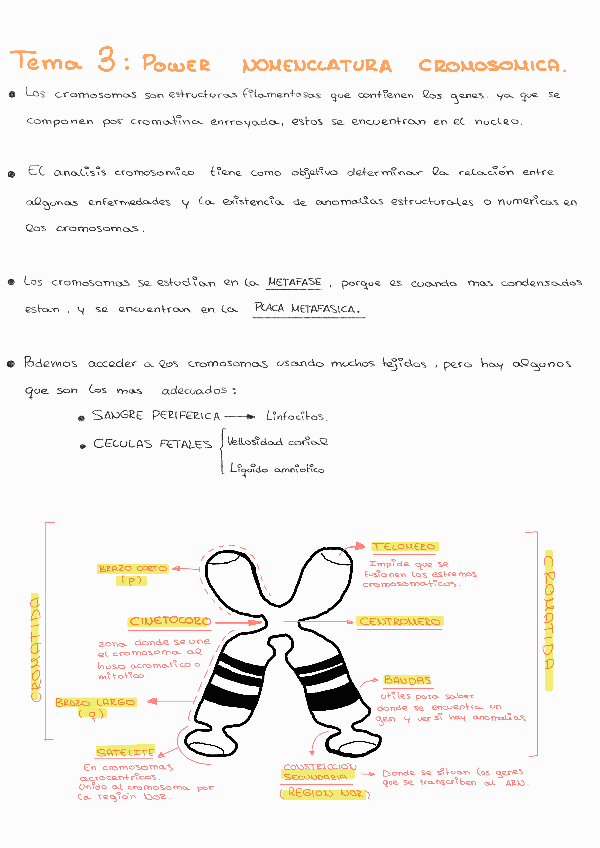 Tema 3: POWER NOMENCLATURA CROMOSOMICA.
• Los cromosomas son estructuras filamentosas que contienen los genes. ya que se
componen por cromatina enrroyada, estos se encuentran en el nucleo.
• El analisis cromosomico tiene como objetivo determinar la relación entre
algunas enfermedades y la existencia de anomalias estructurales o numericas en
los cromosomas.
• Los cromosomas se estudian en la METAFASE, porque es cuando mas condensados
estan, y se encuentran en la PLACA METAFASICA.
• Podemos acceder a los cromosomas usando muchos tejidos, pero hay algunos
que son los mas adecuados:
• SANGRE PERIFERICA → Linfocitos.
• CELULAS FETALES
Vellosidad corial
Liquido amniotico
CROMATIDA
BRAZO CORTO
(p)
CINETOCORO
zona donde se une
el cromosoma al
huso acromatico o
mitotico.
BRAZO LARGO
(q)
SATELITE
En cromosomas
acrocentricos.
Unido al cromosoma por
la región NOR.
TELOMERO
Impide que se
fusionen los extremos
cromosomaticos.
CENTROMERO
BANDAS
utiles para saber
donde se encuentra un
gen y ver si hay anomalias
CONSTRICCION
SECUNDARIA
(REGION NOR)
→ Donde se situan los genes
que se transcriben al ARN.
CROMATIDA